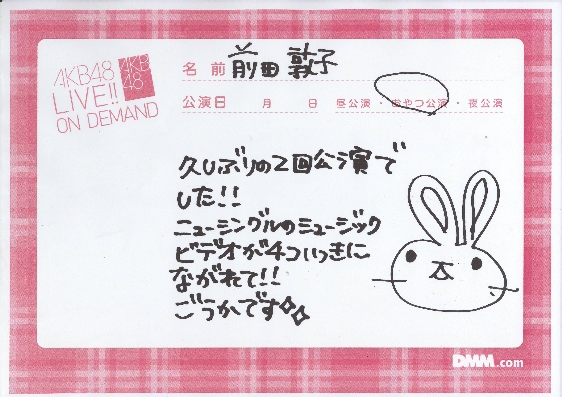 AKB48
LIVE!!
ON DEMAND
AKB
48
名 前 前田 敦子
公演日 月 日 昼公演・おやつ公演・夜公演
久しぶりの2回公演で
した!!
ニューシングルのミュージック
ビデオが4ついっきに
ながれて!!
ごうかです
DMM.com